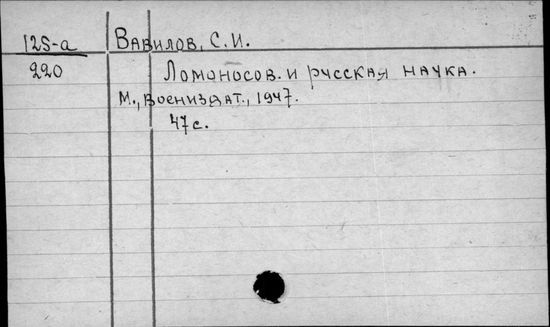 125-а Вавилов, С.И.
220 Ломоносов. и русская наука.
М., Воениздат., 1947.
47с.